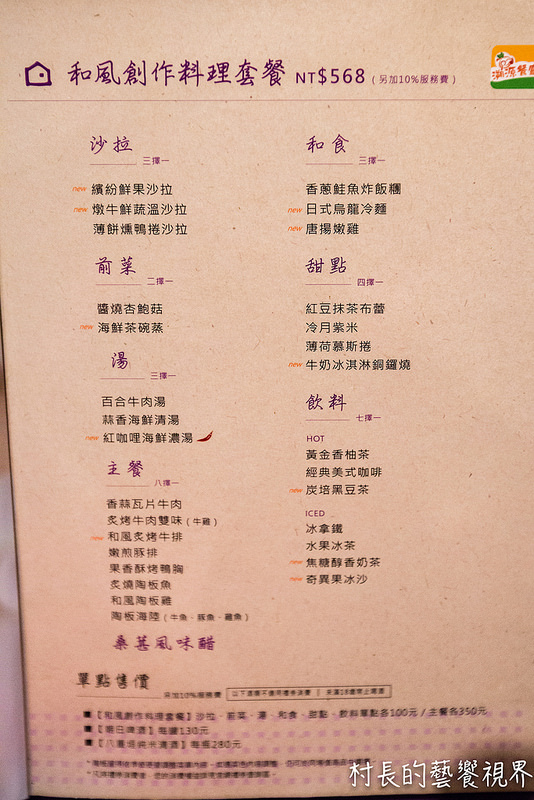 和風創作料理套餐 NT$568 (另加10%服務費)
沙拉
三擇一
new 繽紛鮮果沙拉
new 燉牛鮮蔬溫沙拉
薄餅燻鴨捲沙拉
前菜
二擇一
醬燒杏鮑菇
new 海鮮茶碗蒸
湯
三擇一
百合牛肉湯
蒜香海鮮清湯
new 紅咖哩海鮮濃湯
主餐
八擇一
香蒜瓦片牛肉
炙烤牛肉雙味(牛雞)
new 和風炙烤牛排
嫩煎豚排
果香酥烤鴨胸
炙燒陶板魚
和風陶板雞
陶板海陸(牛魚、豚魚、雞魚)
桑葚風味醋
和食
三擇一
香蔥鮭魚炸飯糰
new 日式烏龍冷麵
new 唐揚嫩雞
甜點
四擇一
紅豆抹茶布蕾
冷月紫米
薄荷慕斯捲
new 牛奶冰淇淋銅鑼燒
飲料
七擇一
HOT
黃金香柚茶
經典美式咖啡
new 炭培黑豆茶
ICED
冰拿鐵
水果冰茶
new 焦糖醇香奶茶
new 奇異果冰沙
單點售價
另加10%服務費 以下酒類不適用禮券消費 | 未滿18歲禁止喝酒
■【和風創作料理套餐】沙拉、前菜、湯、和食、甜點、飲料單點各100元/主餐各350元
■【朝日啤酒】每罐130元
■【八重垣純米清酒】每瓶280元
村長的藝饗視界